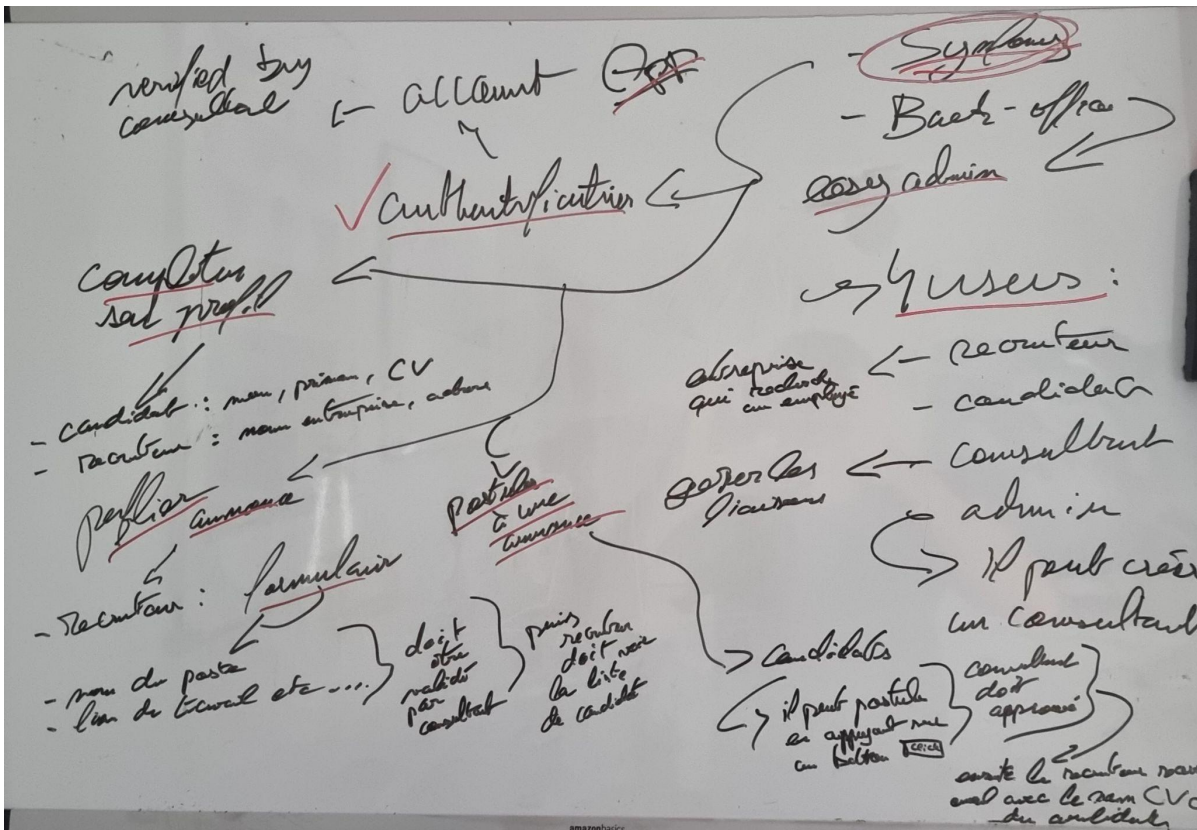 verified by
consultant
account
- Symfony
- Back-office
easy admin
authentification
compléter
son profil
- candidat : nom, prénom, CV
- recruteur : nom entreprise, adresse
4 users :
- recruteur
entreprise
qui recherche
un employé
- candidats
- consultant
gérer les
liaisons
- admin
il peut créer
un consultant
publier
annonce
- recruteur : formulaire
- nom du poste
- lieu de travail etc ....
doit
être
validé
par
consultant
puis
recruteur
doit voir
la liste
de candidat
postuler
à une
annonce
candidats
il peut postuler
en appuyant sur
un bouton click
consultant
doit
approuvé
ensuite le recruteur
avec le nom CV
du candidats
amazonbasics